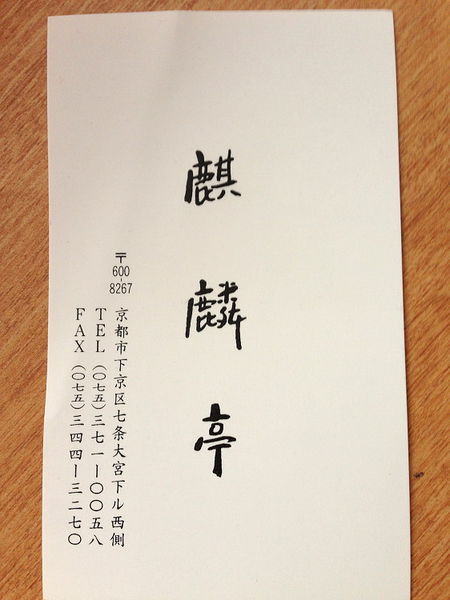 麒麟亭
〒600-8267
京都市下京区七条大宮下ル西側
TEL(〇七五)三七一ー〇〇五八
FAX(〇七五)三四四ー三二七〇